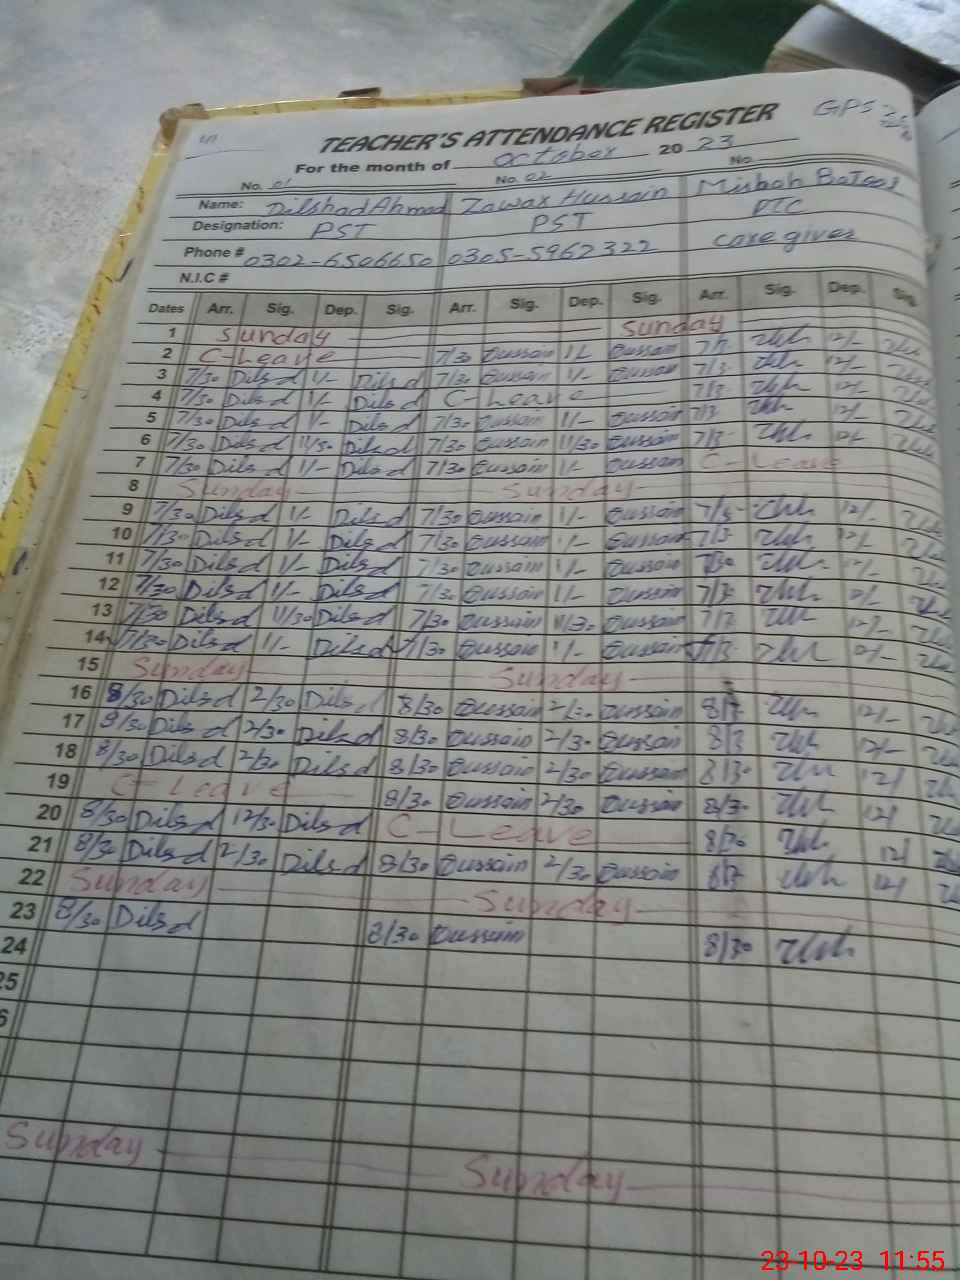 TEACHER'S ATTENDANCE REGISTER GPS
For the month of October 20 23
No. 01 No. 02 No.
Name: Dilshad Ahmad Zawar Hussain Misbah Batool
Designation: PST PST PTC
Phone # 0302-6506650 0305-5962322 care giver
N.I.C #
Dates Arr. Sig. Dep. Sig. Arr. Sig. Dep. Sig. Arr. Sig. Dep. Sig.
1 Sunday Sunday
2 C-Leave 7/30 Oussain 1/- Oussain 12/-
3 7/30 Dilsd 1/- Dilsd 7/30 Oussain 1/- Oussain 7/3 12/-
4 7/30 Dilsd 1/- Dilsd C-Leave 7/3 12/-
5 7/30 Dilsd 1/- Dilsd 7/30 Oussain 1/- Oussain 7/3 12/-
6 7/30 Dilsd 11/30 Dilsd 7/30 Oussain 11/30 Oussain 7/3 12/-
7 7/30 Dilsd 1/- Dilsd 7/30 Oussain 1/- Oussain C-Leave
8 Sunday Sunday
9 7/30 Dilsd 1/- Dilsd 7/30 Oussain 1/- Oussain 12/-
10 7/30 Dilsd 1/- Dilsd 7/30 Oussain 1/- Oussain 7/3 12/-
11 7/30 Dilsd 1/- Dilsd 7/30 Oussain 1/- Oussain 7/30 12/-
12 7/30 Dilsd 1/- Dilsd 7/30 Oussain 1/- Oussain 7/3 12/-
13 7/30 Dilsd 11/30 Dilsd 7/30 Oussain 11/30 Oussain 12/-
14 7/30 Dilsd 1/- Dilsd 7/30 Oussain 1/- Oussain 12/-
15 Sunday Sunday
16 8/30 Dilsd 2/30 Dilsd 8/30 Oussain 2/30 Oussain 12/-
17 8/30 Dilsd 2/30 Dilsd 8/30 Oussain 2/30 Oussain 8/3 12/-
18 8/30 Dilsd 2/30 Dilsd 8/30 Oussain 2/30 Oussain 8/30 12/
19 C-Leave 8/30 Oussain 2/30 Oussain 8/30 12/
20 8/30 Dilsd 12/30 Dilsd C-Leave 8/30 12/
21 8/30 Dilsd 2/30 Dilsd 8/30 Oussain 2/30 Oussain 12/
22 Sunday Sunday
23 8/30 Dilsd 8/30 Oussain 8/30
24
25
6
Sunday Sunday
23-10-23 11:55